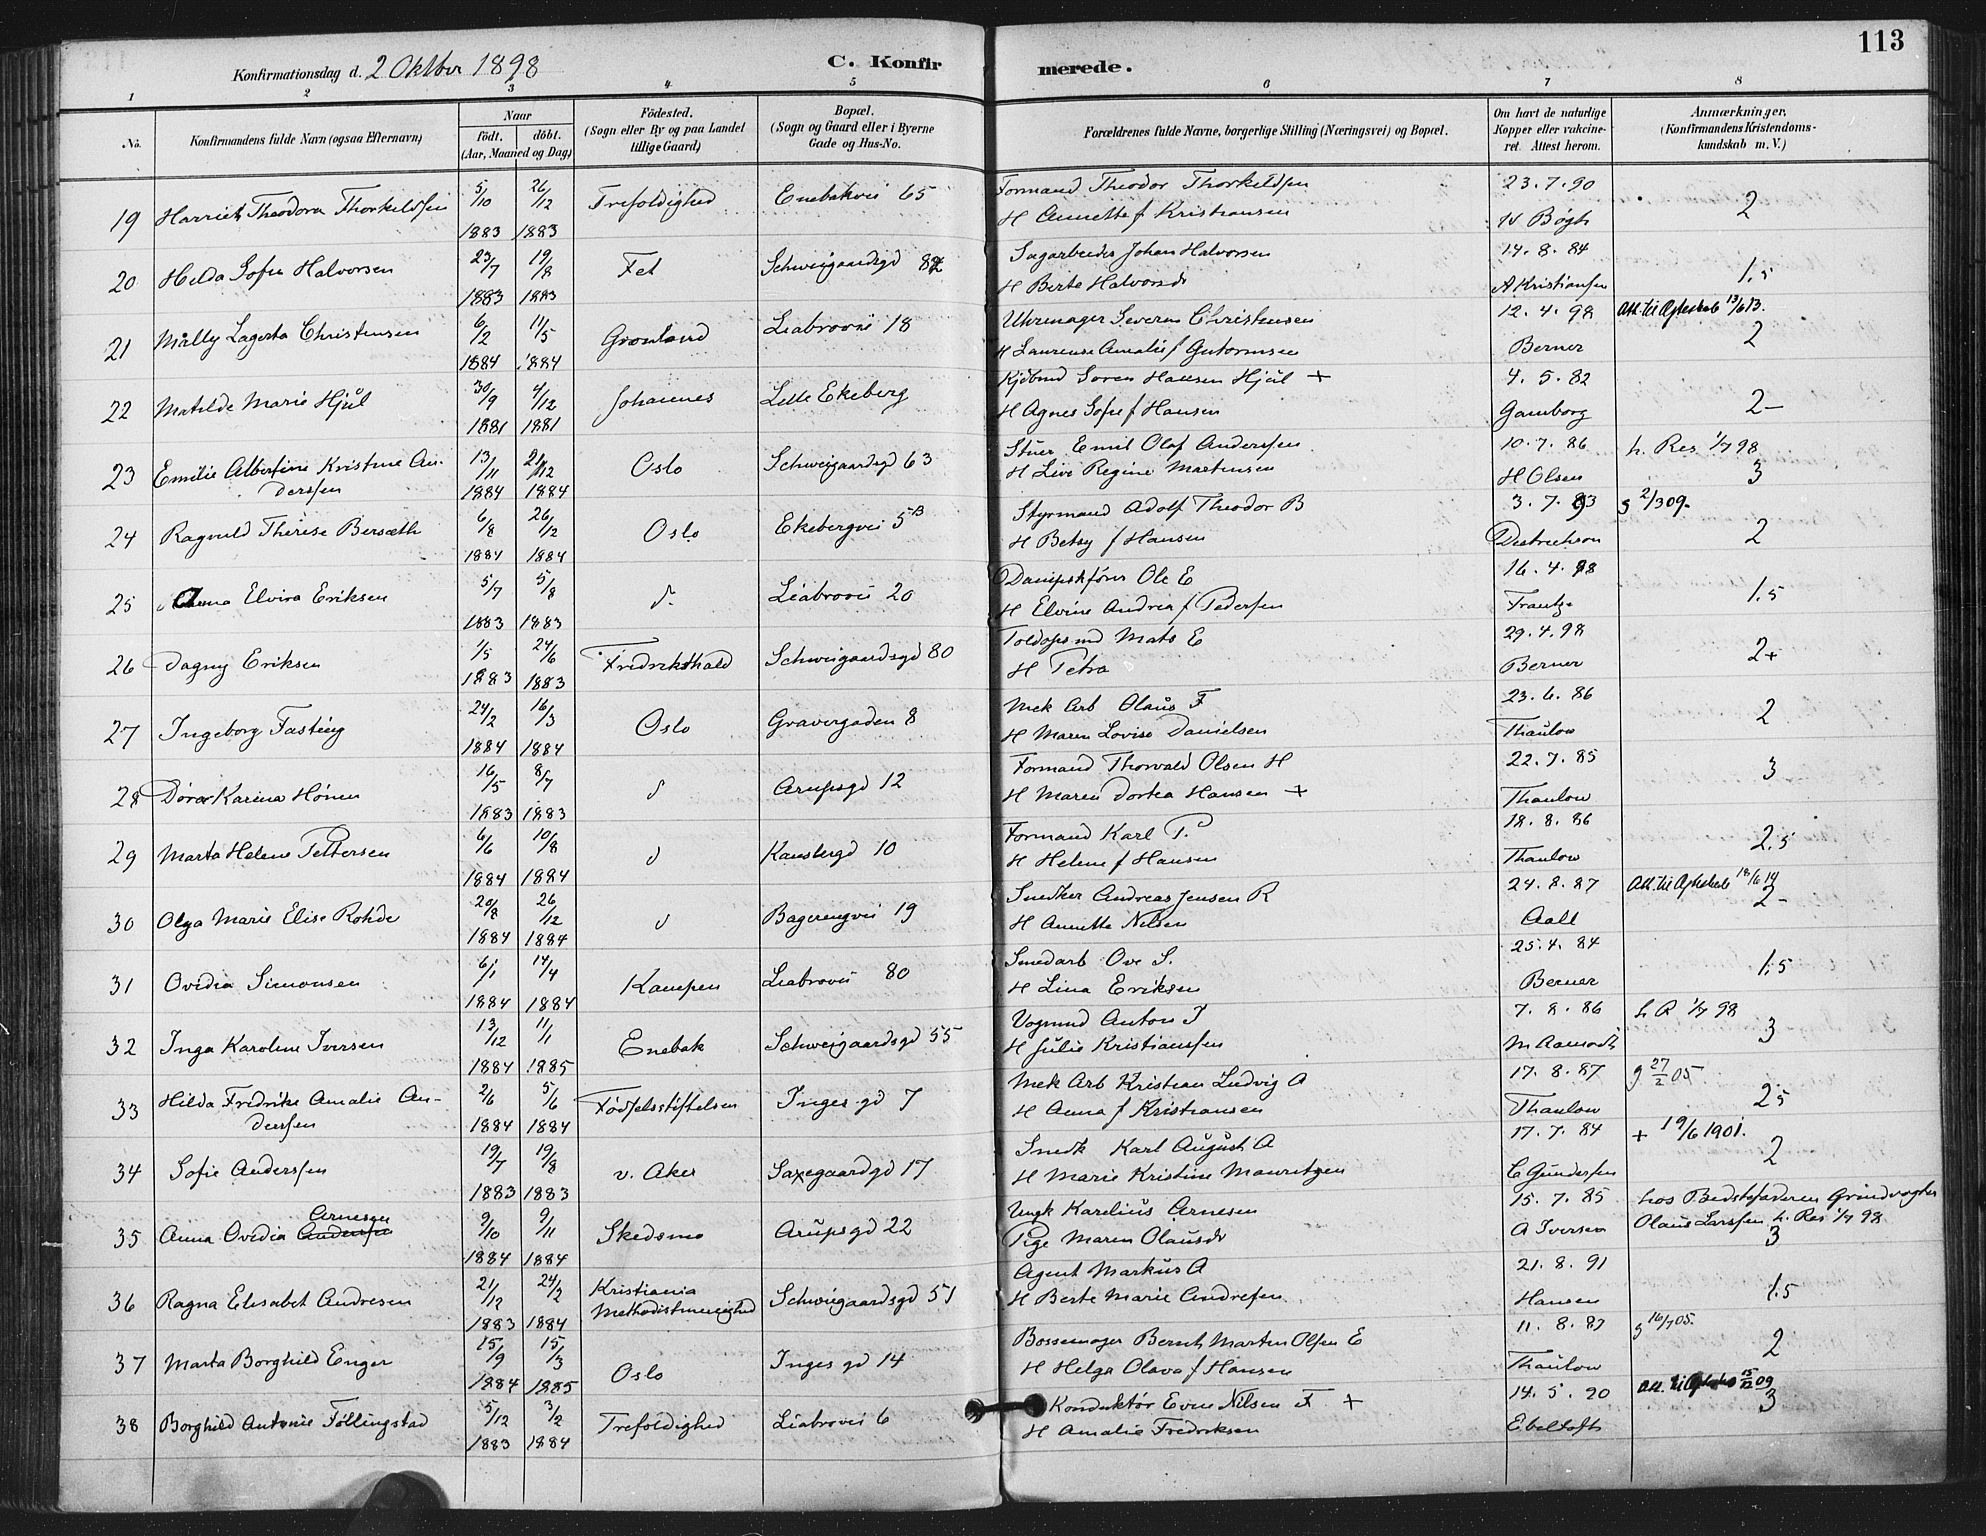 113
Konfirmationsdag d. 2 Oktber 1898 C. Konfirmerede.
1 2 3 4 5 6 7 8
No. Konfirmandens fulde Navn (ogsaa Efternavn) Naar født. døbt. (Aar, Maaned og Dag) Fødested. (Sogn eller By og paa Landet tillige Gaard) Bopæl. (Sogn og Gaard eller i Byerne Gade og Hus-No. Forældrenes fulde Navne, borgerlige Stilling (Næringsvei) og Bopæl. Om havt de naturlige Kopper eller vakcineret. Attest herom. Anmærkninger. (Konfirmandens Kristendomskundskab m. V.)
19 Harriet Theodora Thorkildsen 5/10 1883 26/12 1883 Trefoldighed Enebakvei 65 Formand Theodor Thorkildsen 23.7.90
H Annette f Kristiansen Bøgh 2
20 Hilda Sofie Halvorsen 23/7 1883 19/8 1883 Fet Schweigaardsgd 82 Sagarbeider Johan Halvorsen 14.8.84
H Berte Halvorsd A Kristiansen 1.5
21 Mally Lagerta Christensen 6/2 1884 11/5 1884 Grønland Liabrovei 18 Uhrmager Severin Christensen 12.4.98 Att. til Ægteskab 13/6 13.
H Laurense Amalie f Gutormsen Berner 2
22 Matilde Marie Hjùl 30/9 1881 4/12 1881 Johannes Lille Ekeberg Kjøbmd Soren Hansen Hjùl + 4.5.82
H Agnes Sofie f Hansen Gamborg 2-
23 Emilie Albertine Kristine An- 13/11 1884 21/12 1884 Oslo Schweigaardsgd 63 Stuer Emil Olaf Andersen 10.7.86 h. Res 1/7 98
dersen H Live Regine Martensen H Olsen 3
24 Ragnild Therese Bersæth 6/8 1884 26/12 1884 Oslo Ekebergvei 5B Styrmand Adolf Theodor B 3.7.93 g 2/3 09.
H Betsy f Hansen Dietrichson 2
25 Anna Elvira Eriksen 5/7 1883 5/8 1883 d. Liabrovei 20 Dampskfører Ole E 16.4.98
H Elvine Andrea f Pedersen Frantze 1.5
26 Dagny Eriksen 1/5 1883 24/6 1883 Fredrikshald Schweigaardsgd 80 Toldopsmd Mats E 29.4.98
H Petra Berner 2+
27 Ingeborg Fasting 24/2 1884 16/3 1884 Oslo Gravergaden 8 Mek Arb Olaùs F 23.6.86
H Maren Lovise Danielsen Thaulow 2
28 Dora Karina Hønen 16/5 1883 8/7 1883 d Arupsgd 12 Formand Thorvald Olsen H 22.7.85
H Maren Dortea Hansen + Thaulow 3
29 Marta Helene Pettersen 6/6 1884 10/8 1884 d Kansbergd 10 Formand Karl P. 18.8.86
H Helene f Hansen Thaulow 2.5
30 Olga Marie Elise Rohde 20/8 1884 26/12 1884 d Bagerengvei 19 Snedker Andreas Jensen R 24.8.87 Att. til Ægteskab 18/6 14
H Annette Nilsen Aall 2-
31 Ovidia Simonsen 6/1 1884 14/4 1884 Kampen Liabrovei 80 Smedarb Ove S. 25.4.84
H Lina Eriksen Berner 1.5
32 Inga Karoline Iversen 13/12 1884 11/1 1885 Enebak Schweigaardsgd 55 Vognmd Anton I 7.8.86 h R 1/7 98
H Julie Kristiansen M Aamodt 3
33 Hilda Fredrike Amalie An- 2/6 1884 5/6 1884 Fødselsstiftelsen Inges gd 7 Mek Arb Kristian Ludvig A 17.8.87 g 27/2 05.
dersen H Anna f Kristiansen Thaulow 2.5
34 Sofie Andersen 19/7 1883 19/8 1883 v. Aker Saxegaardgd 17 Snedk Karl Aùgùst A 17.7.84 + 19/6 1901.
H Marie Kristine Mauritzen C Gundersen 2
35 Anna Ovidia Andersen Arnesen 9/10 1884 9/11 1884 Skedsmo Arùpsgd 22 Ungk Karelius Arnesen 15.7.85 hos Bedstefaderen Grindvogter
Pige Maren Olausdr A Iversen Olaus Larssen h. Res 1/7 98 3
36 Ragna Elisabet Andresen 21/12 1883 24/2 1884 Kristiania Methodistmenighed Schweigaardsgd 51 Agent Markùs A 21.8.91
H Berte Marie Andresen Hansen 1.5
37 Marta Borghild Enger 15/9 1884 15/3 1885 Oslo Inges gd 14 Bossemager Bernt Martin Olsen E 11.8.87 g 16/7 05.
H Helga Olava f Hansen Thaulow 2
38 Borghild Antonie Føllingstad 5/12 1883 3/2 1884 Trefoldighed Liabrovei 6 Konduktør Even Nilsen F + 14.5.90 Att. til Ægteskab 15/12 09
H Amalie Fredriksen Ebeltoft 3